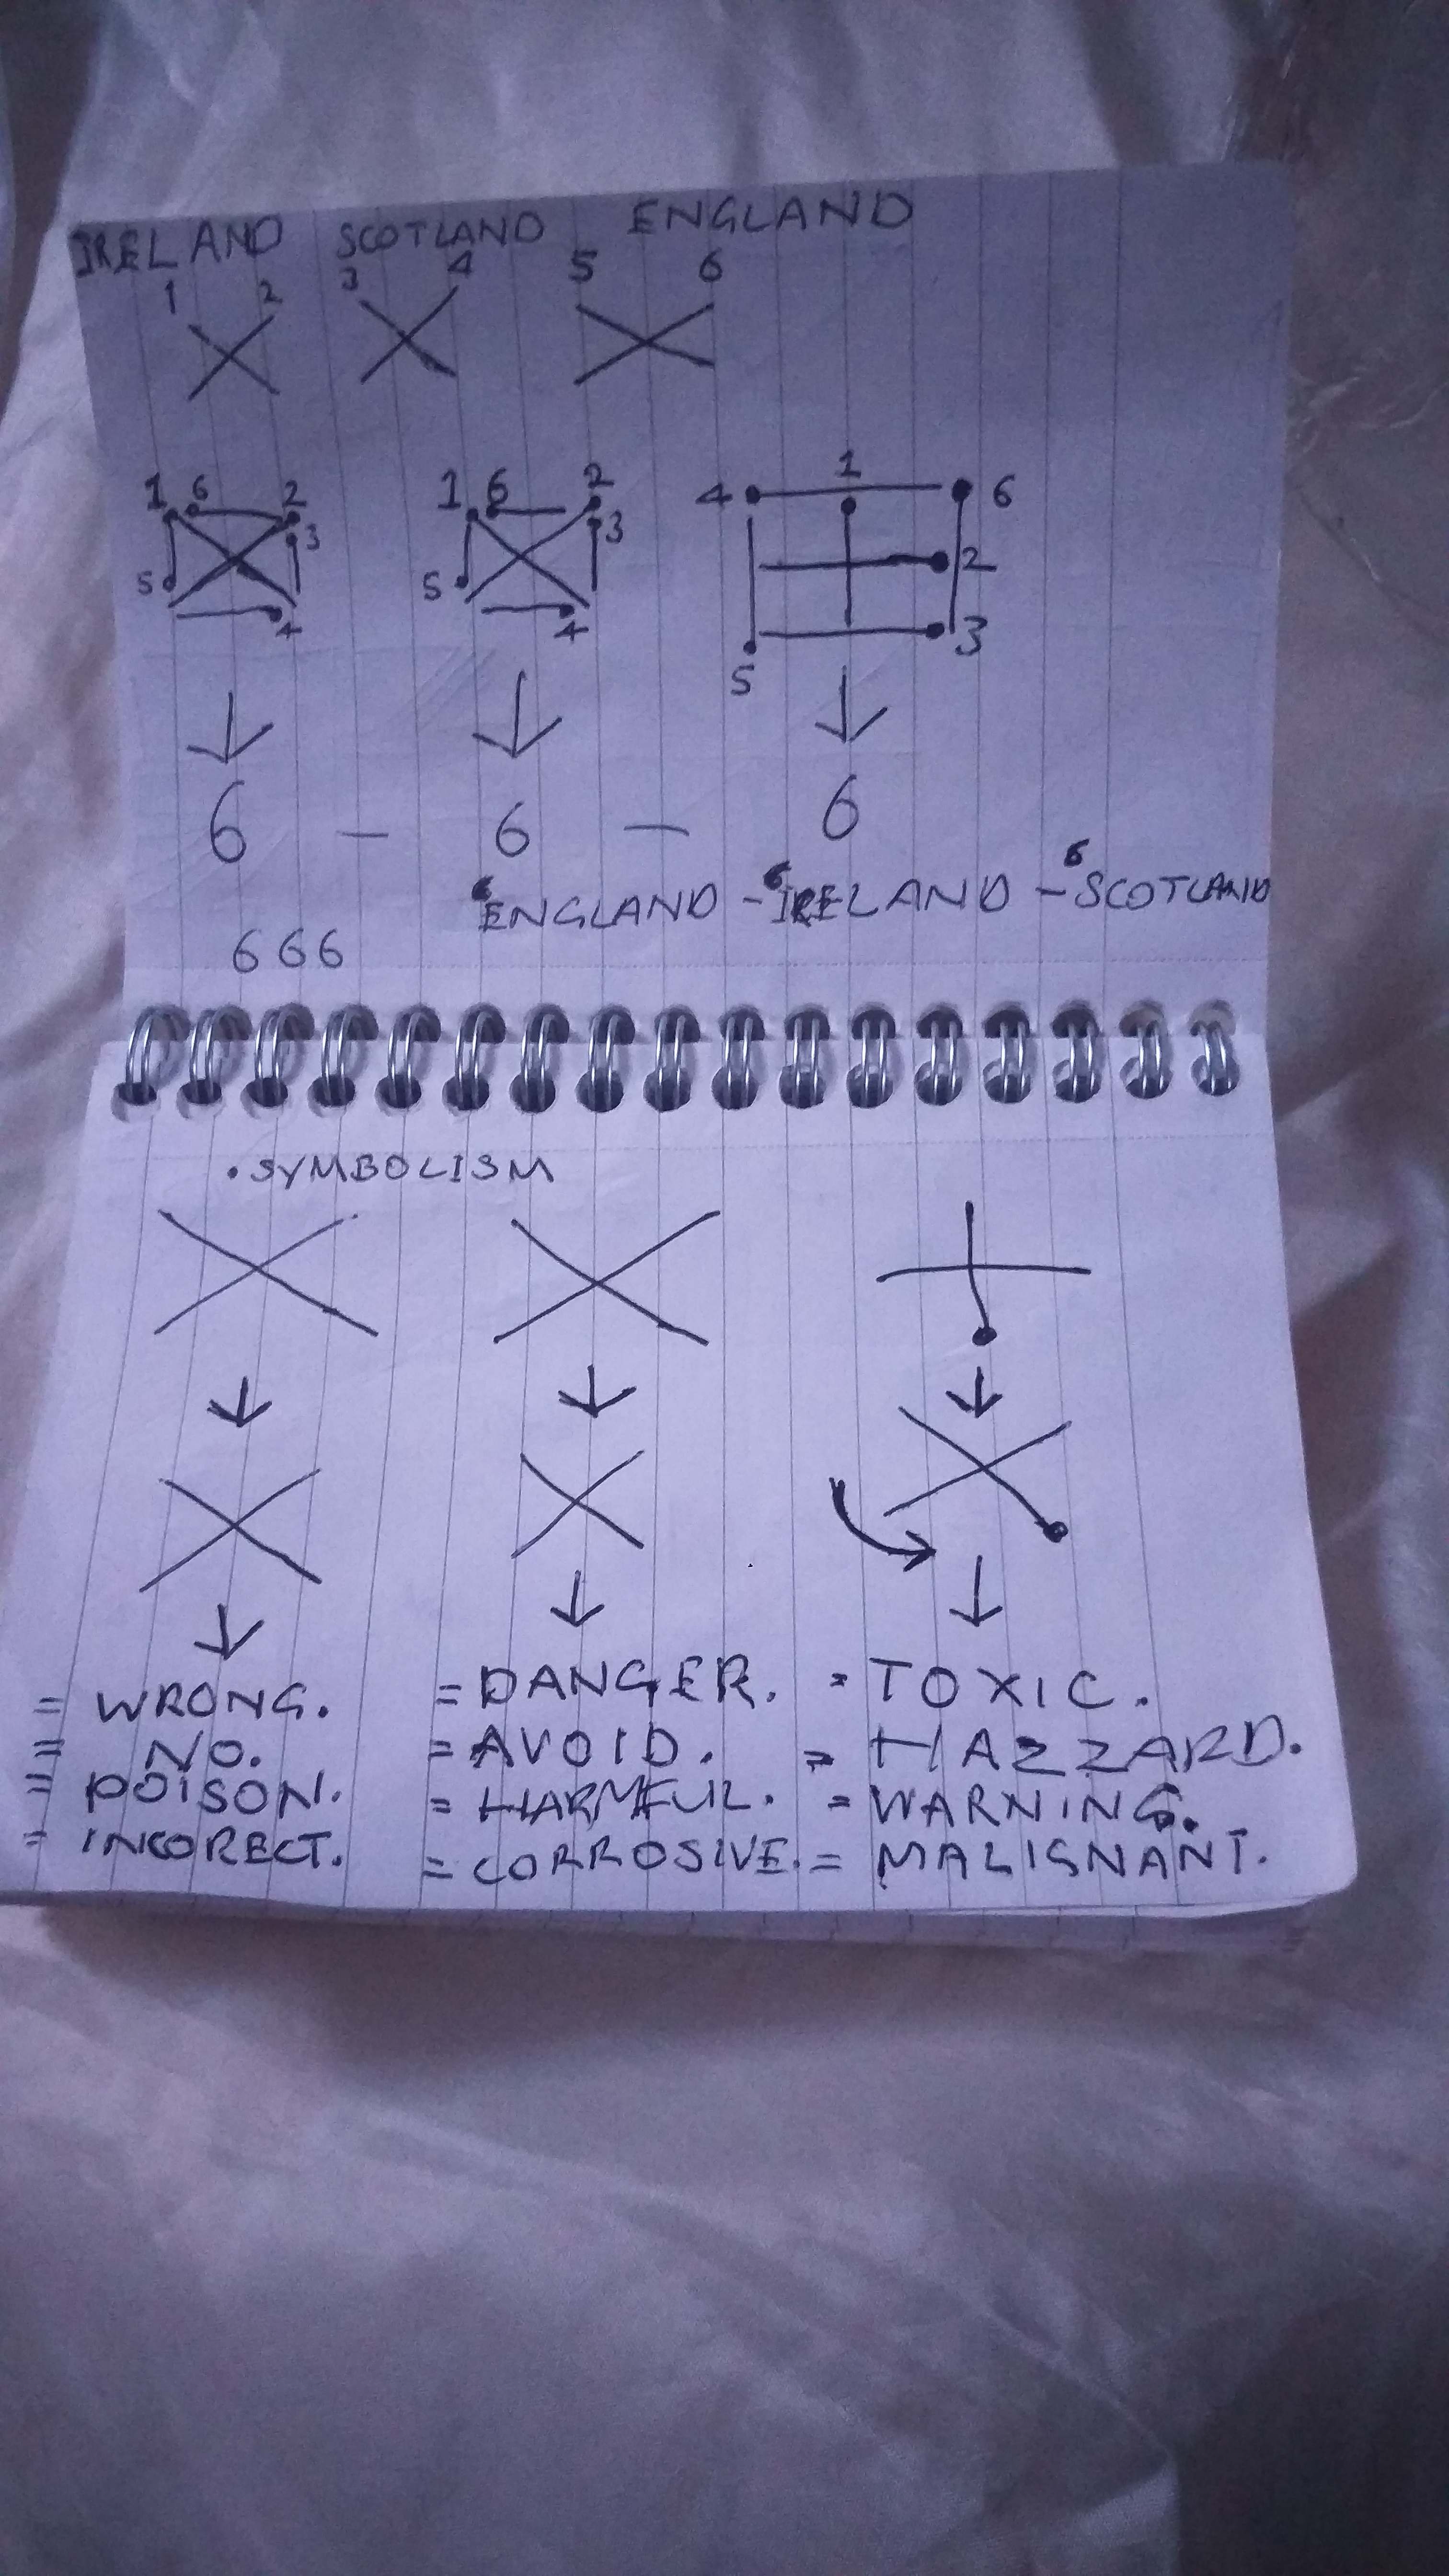 IRELAND SCOTLAND ENGLAND
1 2 3 4 5 6
1 6 2 1 6 2 4 1 6
3 3
5 5 2
4 4 3
5
6 - 6 - 6
6 6 6
ENGLAND - IRELAND - SCOTLAND
666
. SYMBOLISM
= WRONG. = DANGER. = TOXIC.
= NO. = AVOID. = HAZZARD.
= POISON. = HARMFUL. = WARNING.
= INCORECT. = CORROSIVE. = MALIGNANT.